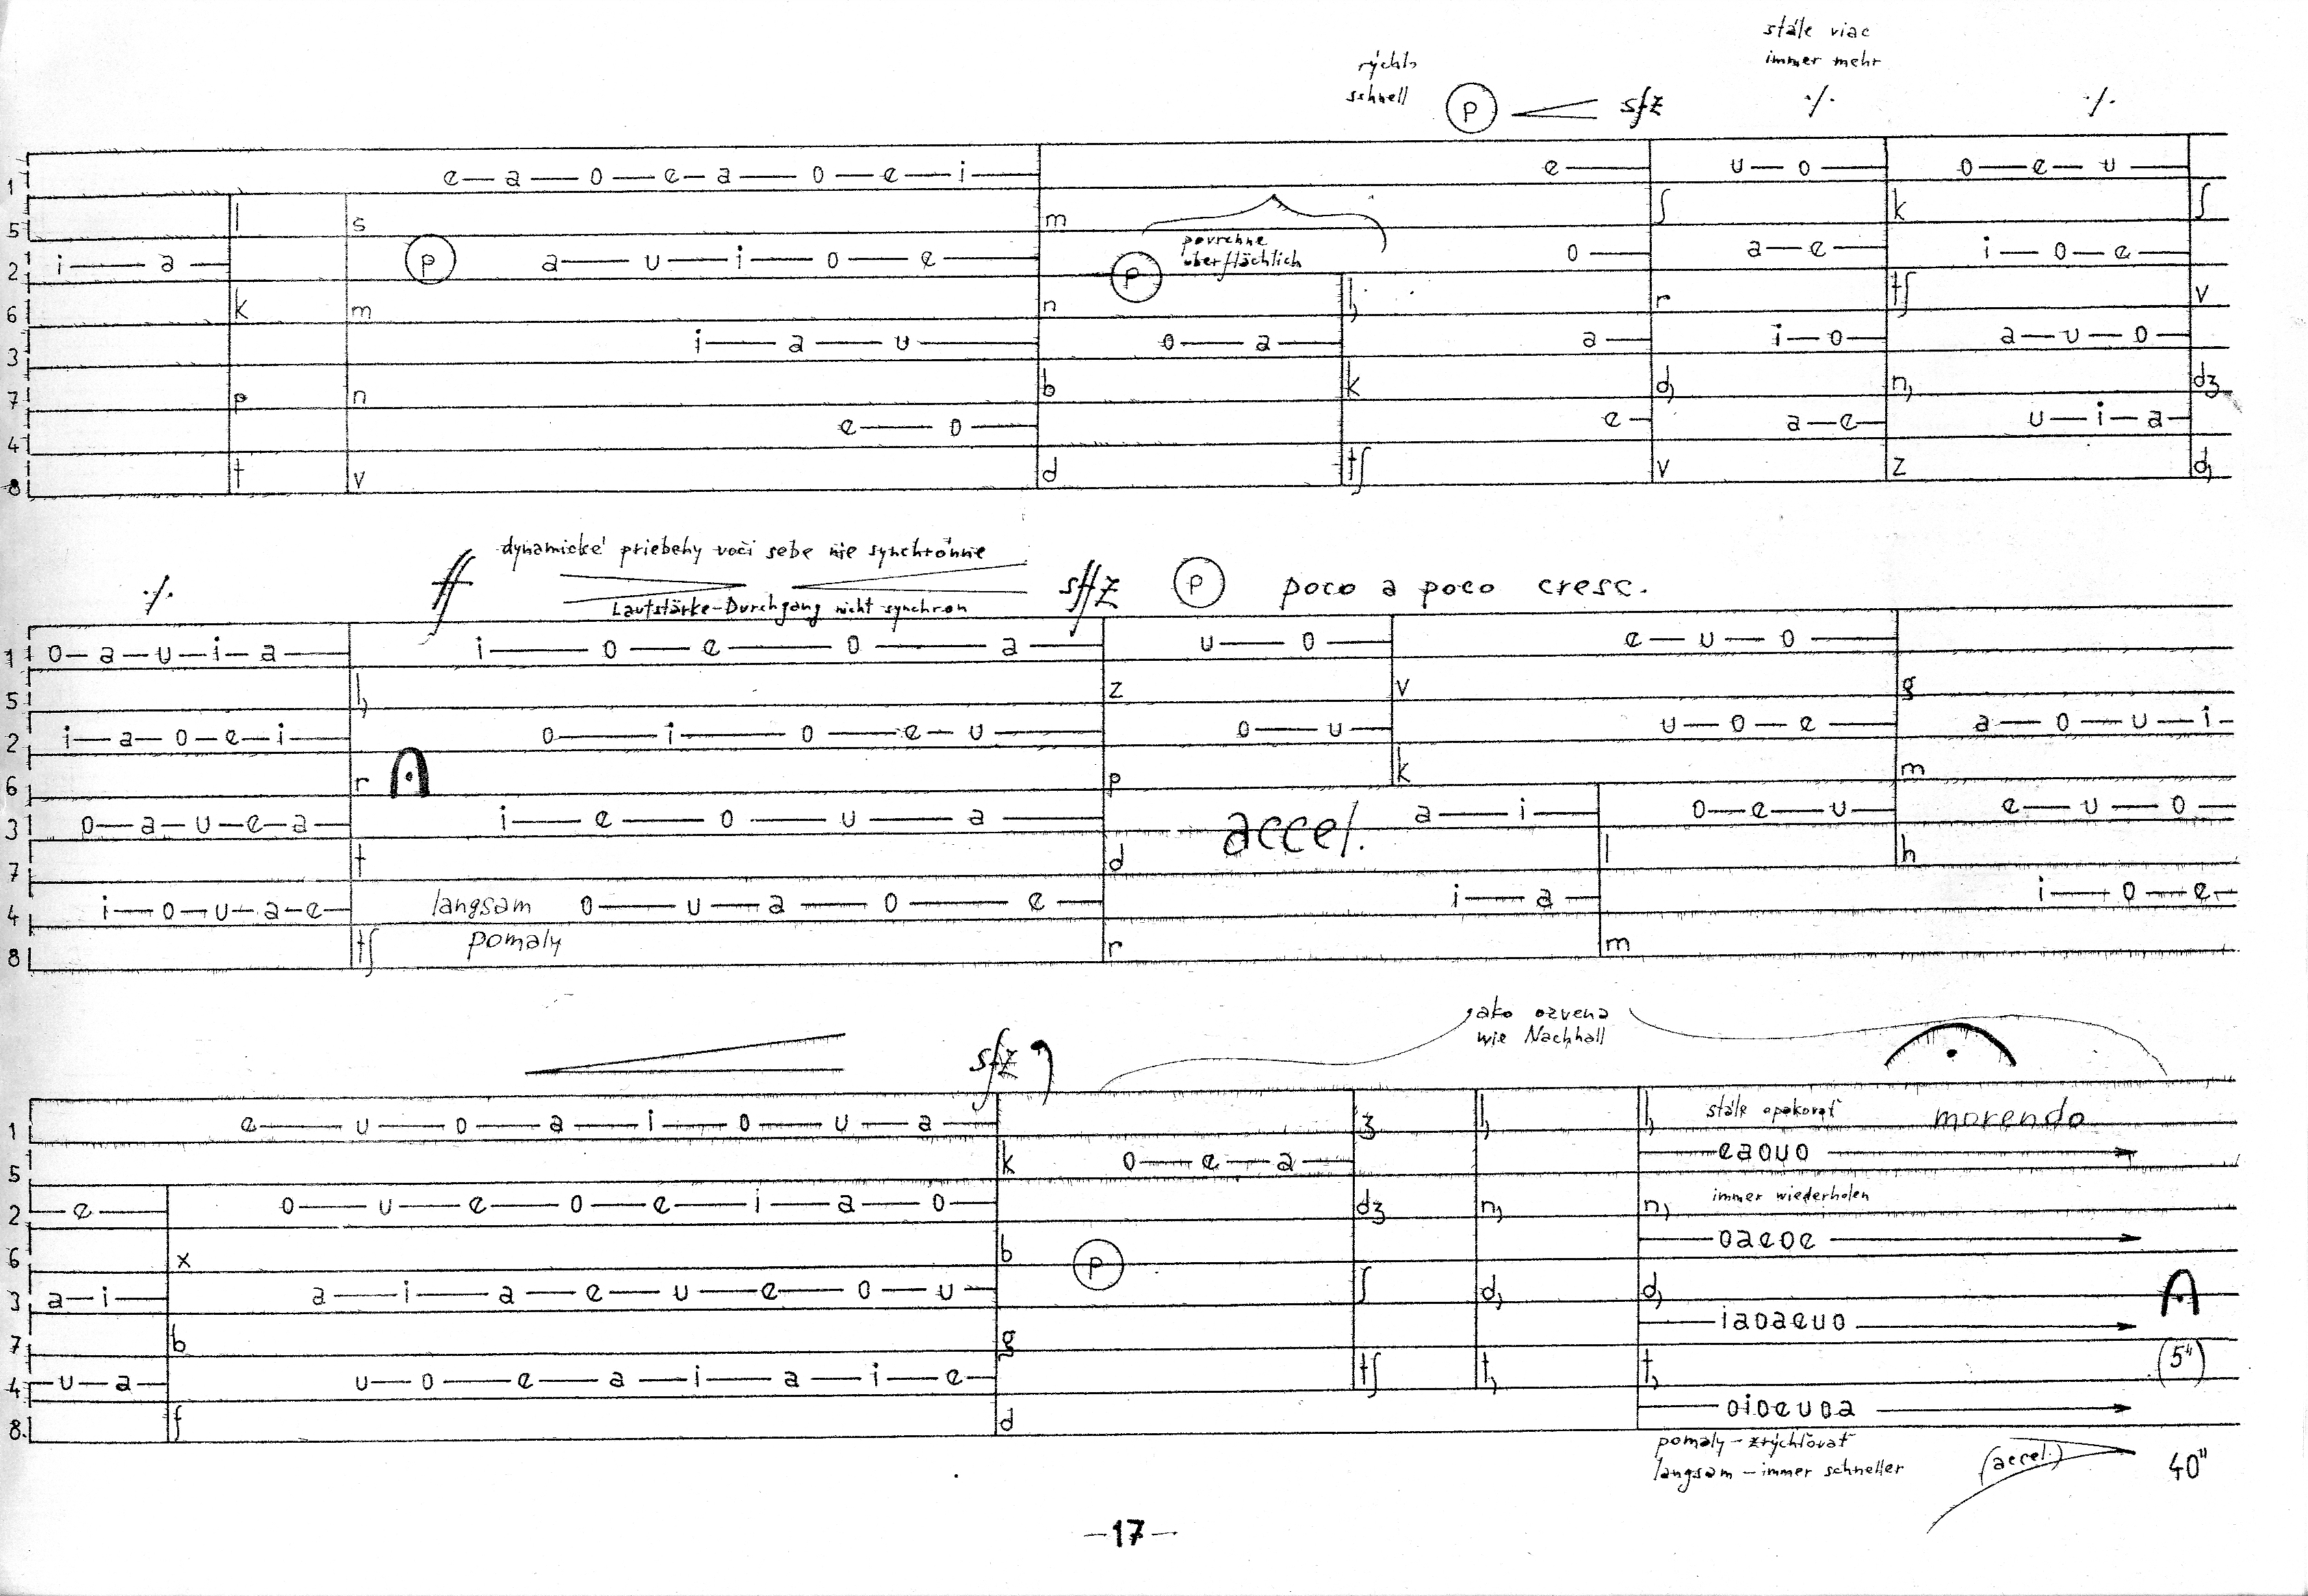 stále viac
immer mehr
rýchlo
schnell
p sfz ·/· ·/·
1 e—a—o—e—a—o—e—i— e— u—o— o—e—u—
5 l s m ʃ k ʃ
povrchne
überflächlich
2 i—a— p a—u—i—o—e— p o— a—e— i—o—e—
6 k m n h, r tʃ v
3 i—a—u— o—a— a— i—o— a—u—o—
7 p n b k d, n, dʒ
4 e—o— e— a—e— u—i—a—
8 t v d tʃ v z d,
dynamické priebehy voči sebe nie synchrónne
·/· ff sffz p poco a poco cresc.
Lautstärke-Durchgang nicht synchron
1 o—a—u—i—a— i—o—e—o—a— u—o— e—u—o—
5 h, z v g
2 i—a—o—e—i— o—i—o—e—u— o—u— u—o—e— a—o—u—i—
6 r p k m
3 o—a—u—e—a— i—e—o—u—a— accel. a—i— o—e—u— e—u—o—
7 t d l h
4 i—o—u—a—e— langsam o—u—a—o—e— i—a— i—o—e—
8 tʃ pomaly r m
jako ozvena
wie Nachhall
sfz
1 e—u—o—a—i—o—u—a— ʒ h, h, stále opakovať morendo
5 k o—e—a— eaouo
2 —e— o—u—e—o—e—i—a—o— dʒ n, n, immer wiederholen
6 x b p oaeoe
3 a—i— a—i—a—e—u—e—o—u— ʃ d, d,
7 b g iaoaeuo
4 —u—a— u—o—e—a—i—a—i—e— tʃ t, t, (5")
8. f d oioeuoa
pomaly – zrýchľovať
langsam – immer schneller (accel.) 40"
—17—